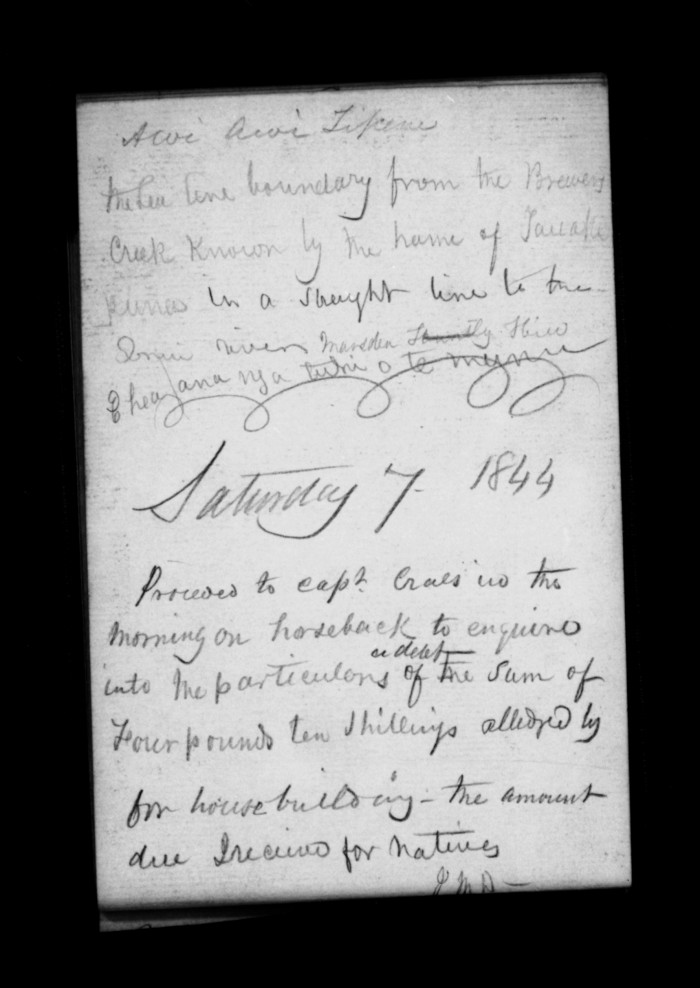 Awi Awi
the Sea line boundary from the Brewers
Creek Known by the name of
in a straght line to the
river Marsden
ana nga o te
Saturday 7. 1844
Proceed to capt. in the
Morning on horseback to enquire
a debt
into the particulars of the Sum of
Four pounds ten Shillings alledged by
for house building - the amount
due I receive for Natives